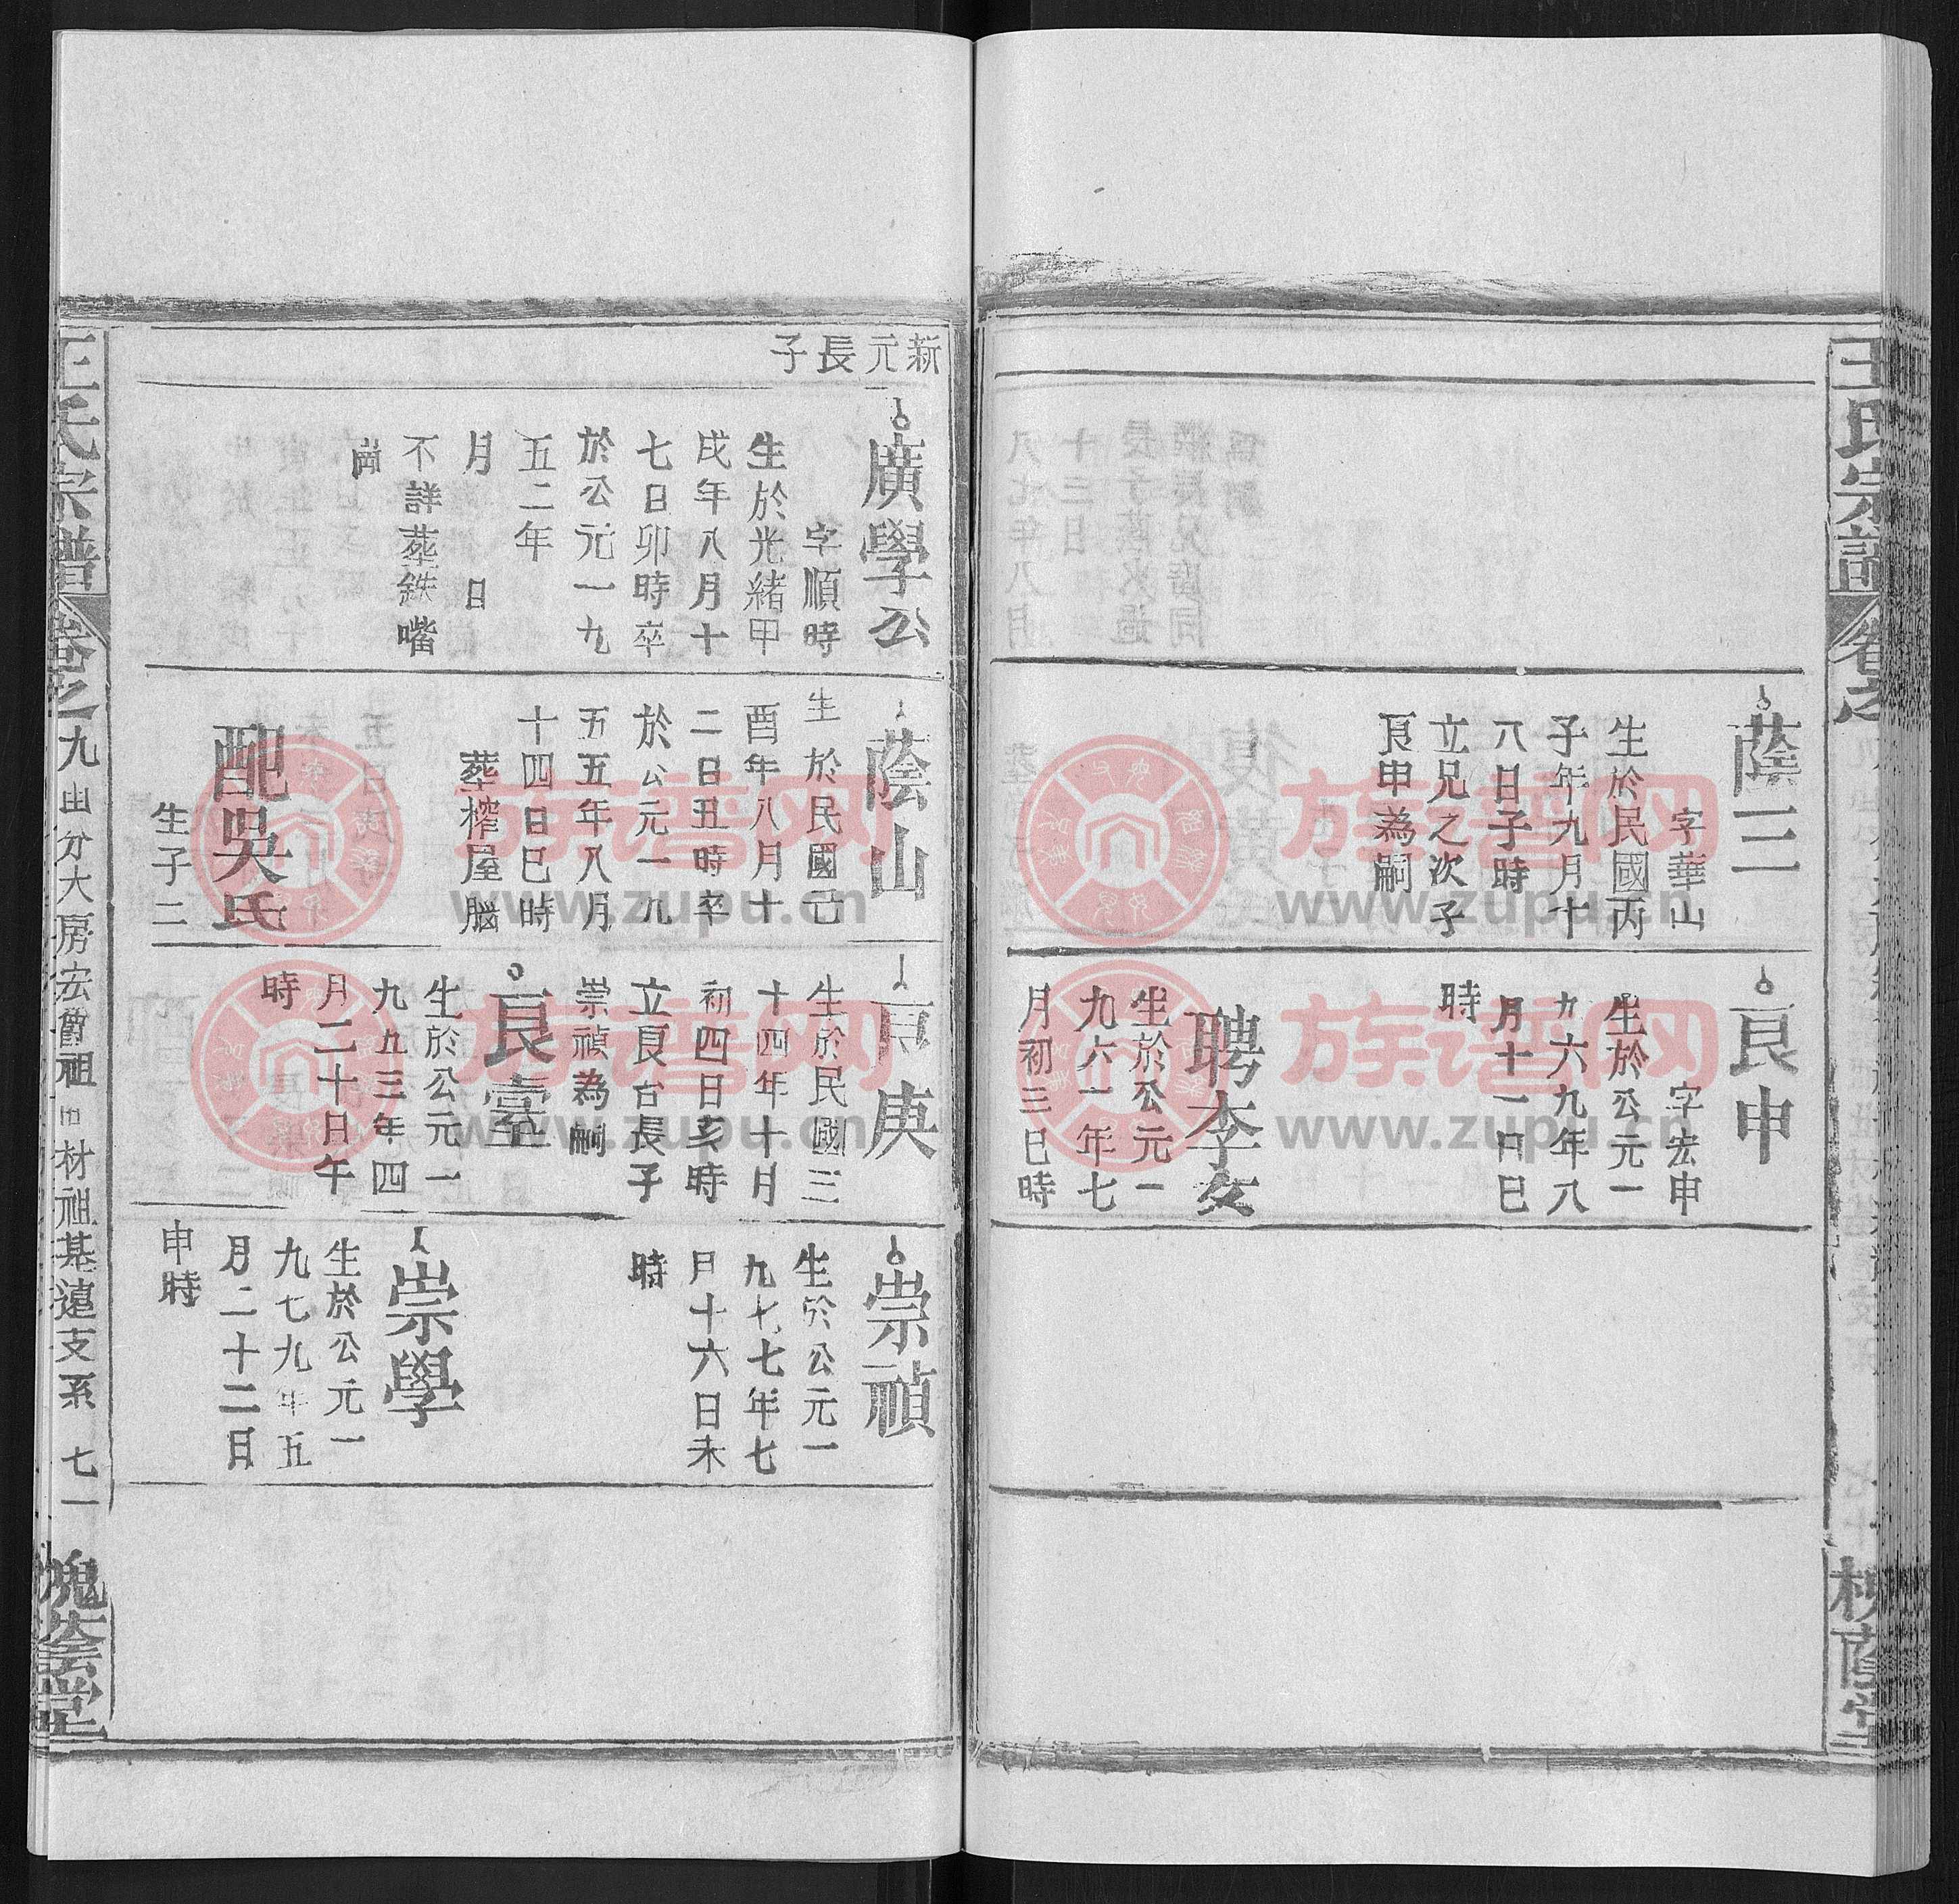 王氏宗譜
卷之
槐蔭堂
蔭三
字華山
生於民國丙
子年九月十
八日子時
立兄之次子
良申為嗣
良申
字宏申
生於公元一
九六九年八
月十一日巳
時
聘李女
生於公元一
九六一年七
月初三巳時
新元長子
廣學公
字順時
生於光緒甲
戌年八月十
七日卯時卒
於公元一九
五二年
月 日
不詳葬鉄嘴
崗
蔭山
生於民國己
酉年八月十
二日丑時卒
於公元一九
五五年八月
十四日巳時
葬榨屋腦
配吳氏
生子二
良庚
生於民國三
十四年十月
初四日亥時
立良台長子
崇禎為嗣
良臺
生於公元一
九五三年四
月二十日午
時
崇禎
生於公元一
九七七年七
月十六日未
時
崇學
生於公元一
九七九年五
月二十二日
申時
王氏宗譜
卷之九
由分大房宏曾祖由材祖基遠支系 七一
槐蔭堂
族谱网
www.zupu.cn
族谱网
www.zupu.cn
族谱网
www.zupu.cn
族谱网
www.zupu.cn